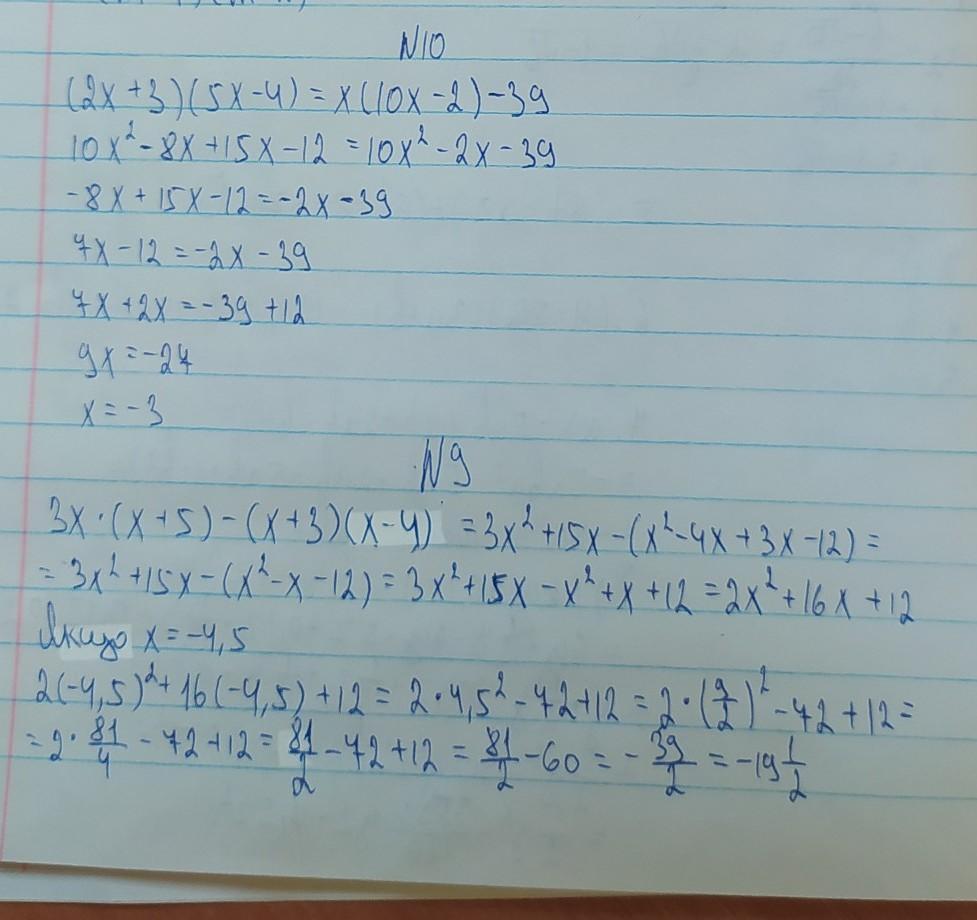 N10
(2x+3)(5x-4)=x(10x-2)-39
10x²-8x+15x-12=10x²-2x-39
-8x+15x-12=-2x-39
7x-12=-2x-39
7x+2x=-39+12
9x=-27
x=-3
N9
3x·(x+5)-(x+3)(x-4) =3x²+15x-(x²-4x+3x-12)=
=3x²+15x-(x²-x-12)=3x²+15x-x²+x+12=2x²+16x+12
Якщо x=-4,5
2(-4,5)²+16(-4,5)+12=2·4,5²-72+12=2·(9/2)²-72+12=
=2·81/4-72+12=81/2-72+12=81/2-60=-39/2=-19 1/2